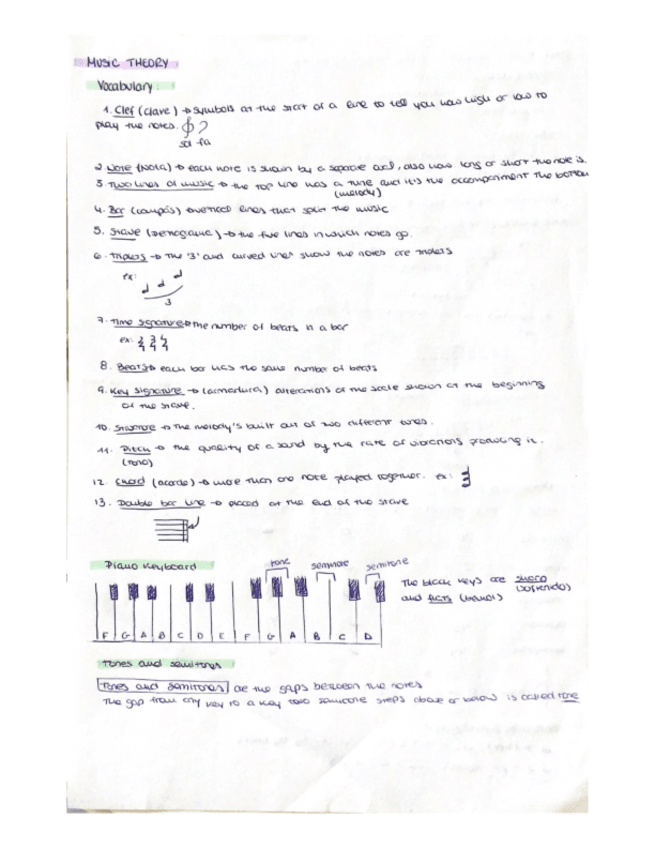 MUSIC THEORY
Vocabulary:
1. Clef (clave) → symbols at the start of a line to tell you how high or low to
play the notes.
sol fa
2. Note (Nota) → each note is shown by a separate oval, also how long or short the note is.
3. Two lines of music → the top line has a tune and it's the accompaniment the bottom
(melody)
4. Bar (compás) → vertical lines that split the music
5. Stave (Pentagrama) → the five lines in which notes go.
6. Triplets → The '3' and curved lines show the notes are triplets
ex:
3
7. Time signature → the number of beats in a bar
ex: 2/4 3/4 4/4
8. Beats → each bar has the same number of beats
9. Key signature → (armadura) alterations of the scale shown at the beginning
of the stave.
10. Structure → the melody's built out of two different tunes.
11. Pitch → the quality of a sound by the rate of vibrations producing it.
(tono)
12. Chord (acorde) → more than one note played together. ex:
13. Double bar line → placed at the end of the stave
Piano Keyboard
tone semitone semitone
F G A B C D E F G A B C D
The black keys are sharp
(sostenido)
and flats (bemol)
tones and semitones
Tones and semitones are the gaps between the notes
The gap from any key to a key two semitone steps above or below is called tone